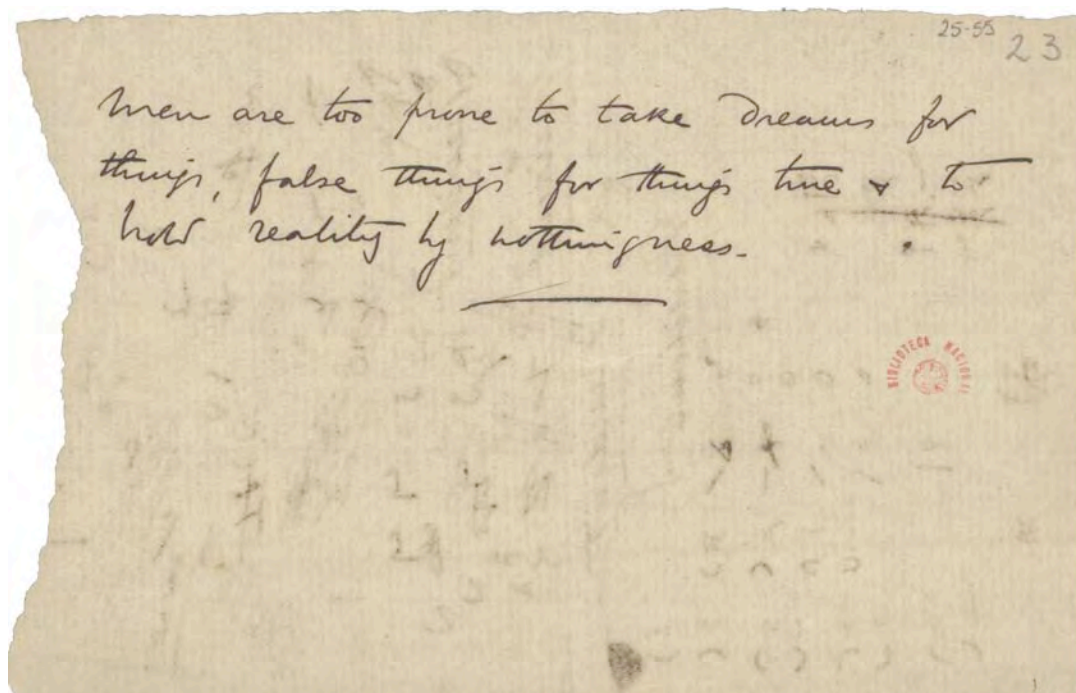 25-55
23
Men are too prone to take dreams for
things, false things for things true & to
hold reality by nothingness.
BIBLIOTECA NACIONAL